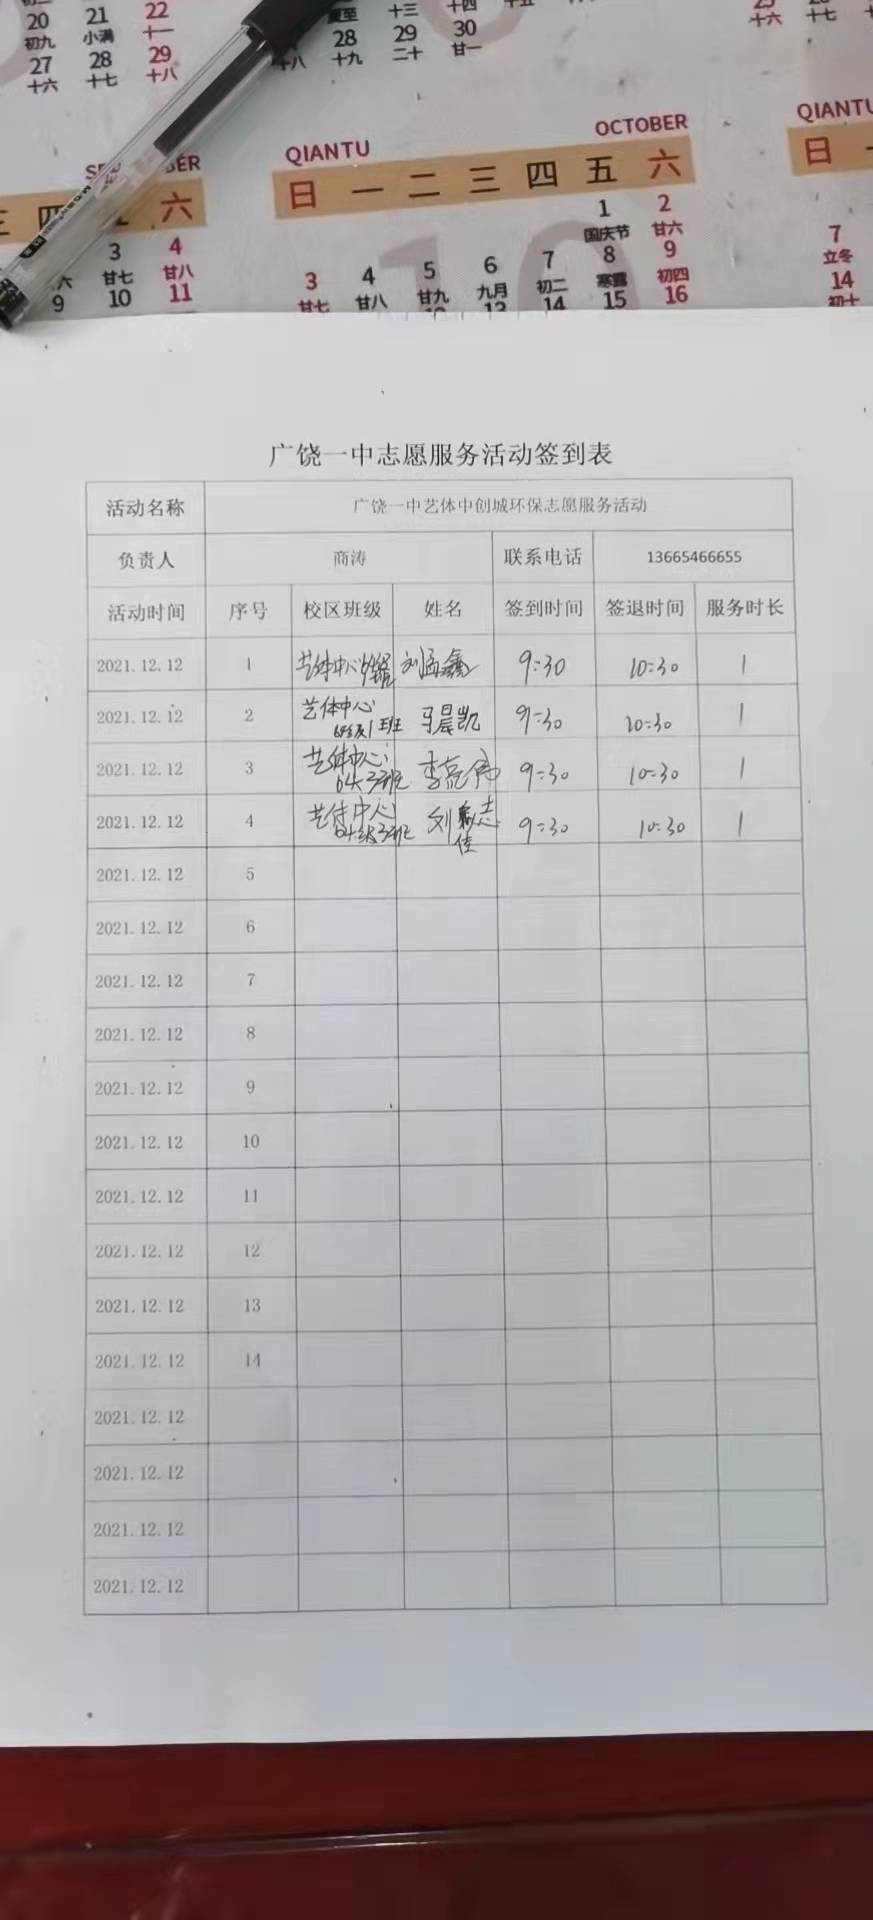 20 21 22
初九 小满 十一
27 28 29
十六 十七 十八
夏至 十三 十四
28 29 30
十八 十九 二十 廿一
十六 十七
SE BER
四 六
3 4
廿七 廿八
9 10 11
QIANTU OCTOBER
日 一 二 三 四 五 六
1 2
国庆节 廿六
3 4 5 6 7 8 9
廿七 廿八 廿九 九月 初二 寒露 初四
13 14 15 16
QIANTU
日
7
立冬
14
初十
广饶一中志愿服务活动签到表
活动名称 广饶一中艺体中创城环保志愿服务活动
负责人 商涛 联系电话 13665466655
活动时间 序号 校区班级 姓名 签到时间 签退时间 服务时长
2021.12.12 1 艺体中心 刘孟鑫 9:30 10:30 1
2021.12.12 2 艺体中心 马晨凯 9:30 10:30 1
2021.12.12 3 艺体中心 9:30 10:30 1
2021.12.12 4 艺体中心 刘 9:30 10:30 1
2021.12.12 5
2021.12.12 6
2021.12.12 7
2021.12.12 8
2021.12.12 9
2021.12.12 10
2021.12.12 11
2021.12.12 12
2021.12.12 13
2021.12.12 14
2021.12.12
2021.12.12
2021.12.12
2021.12.12